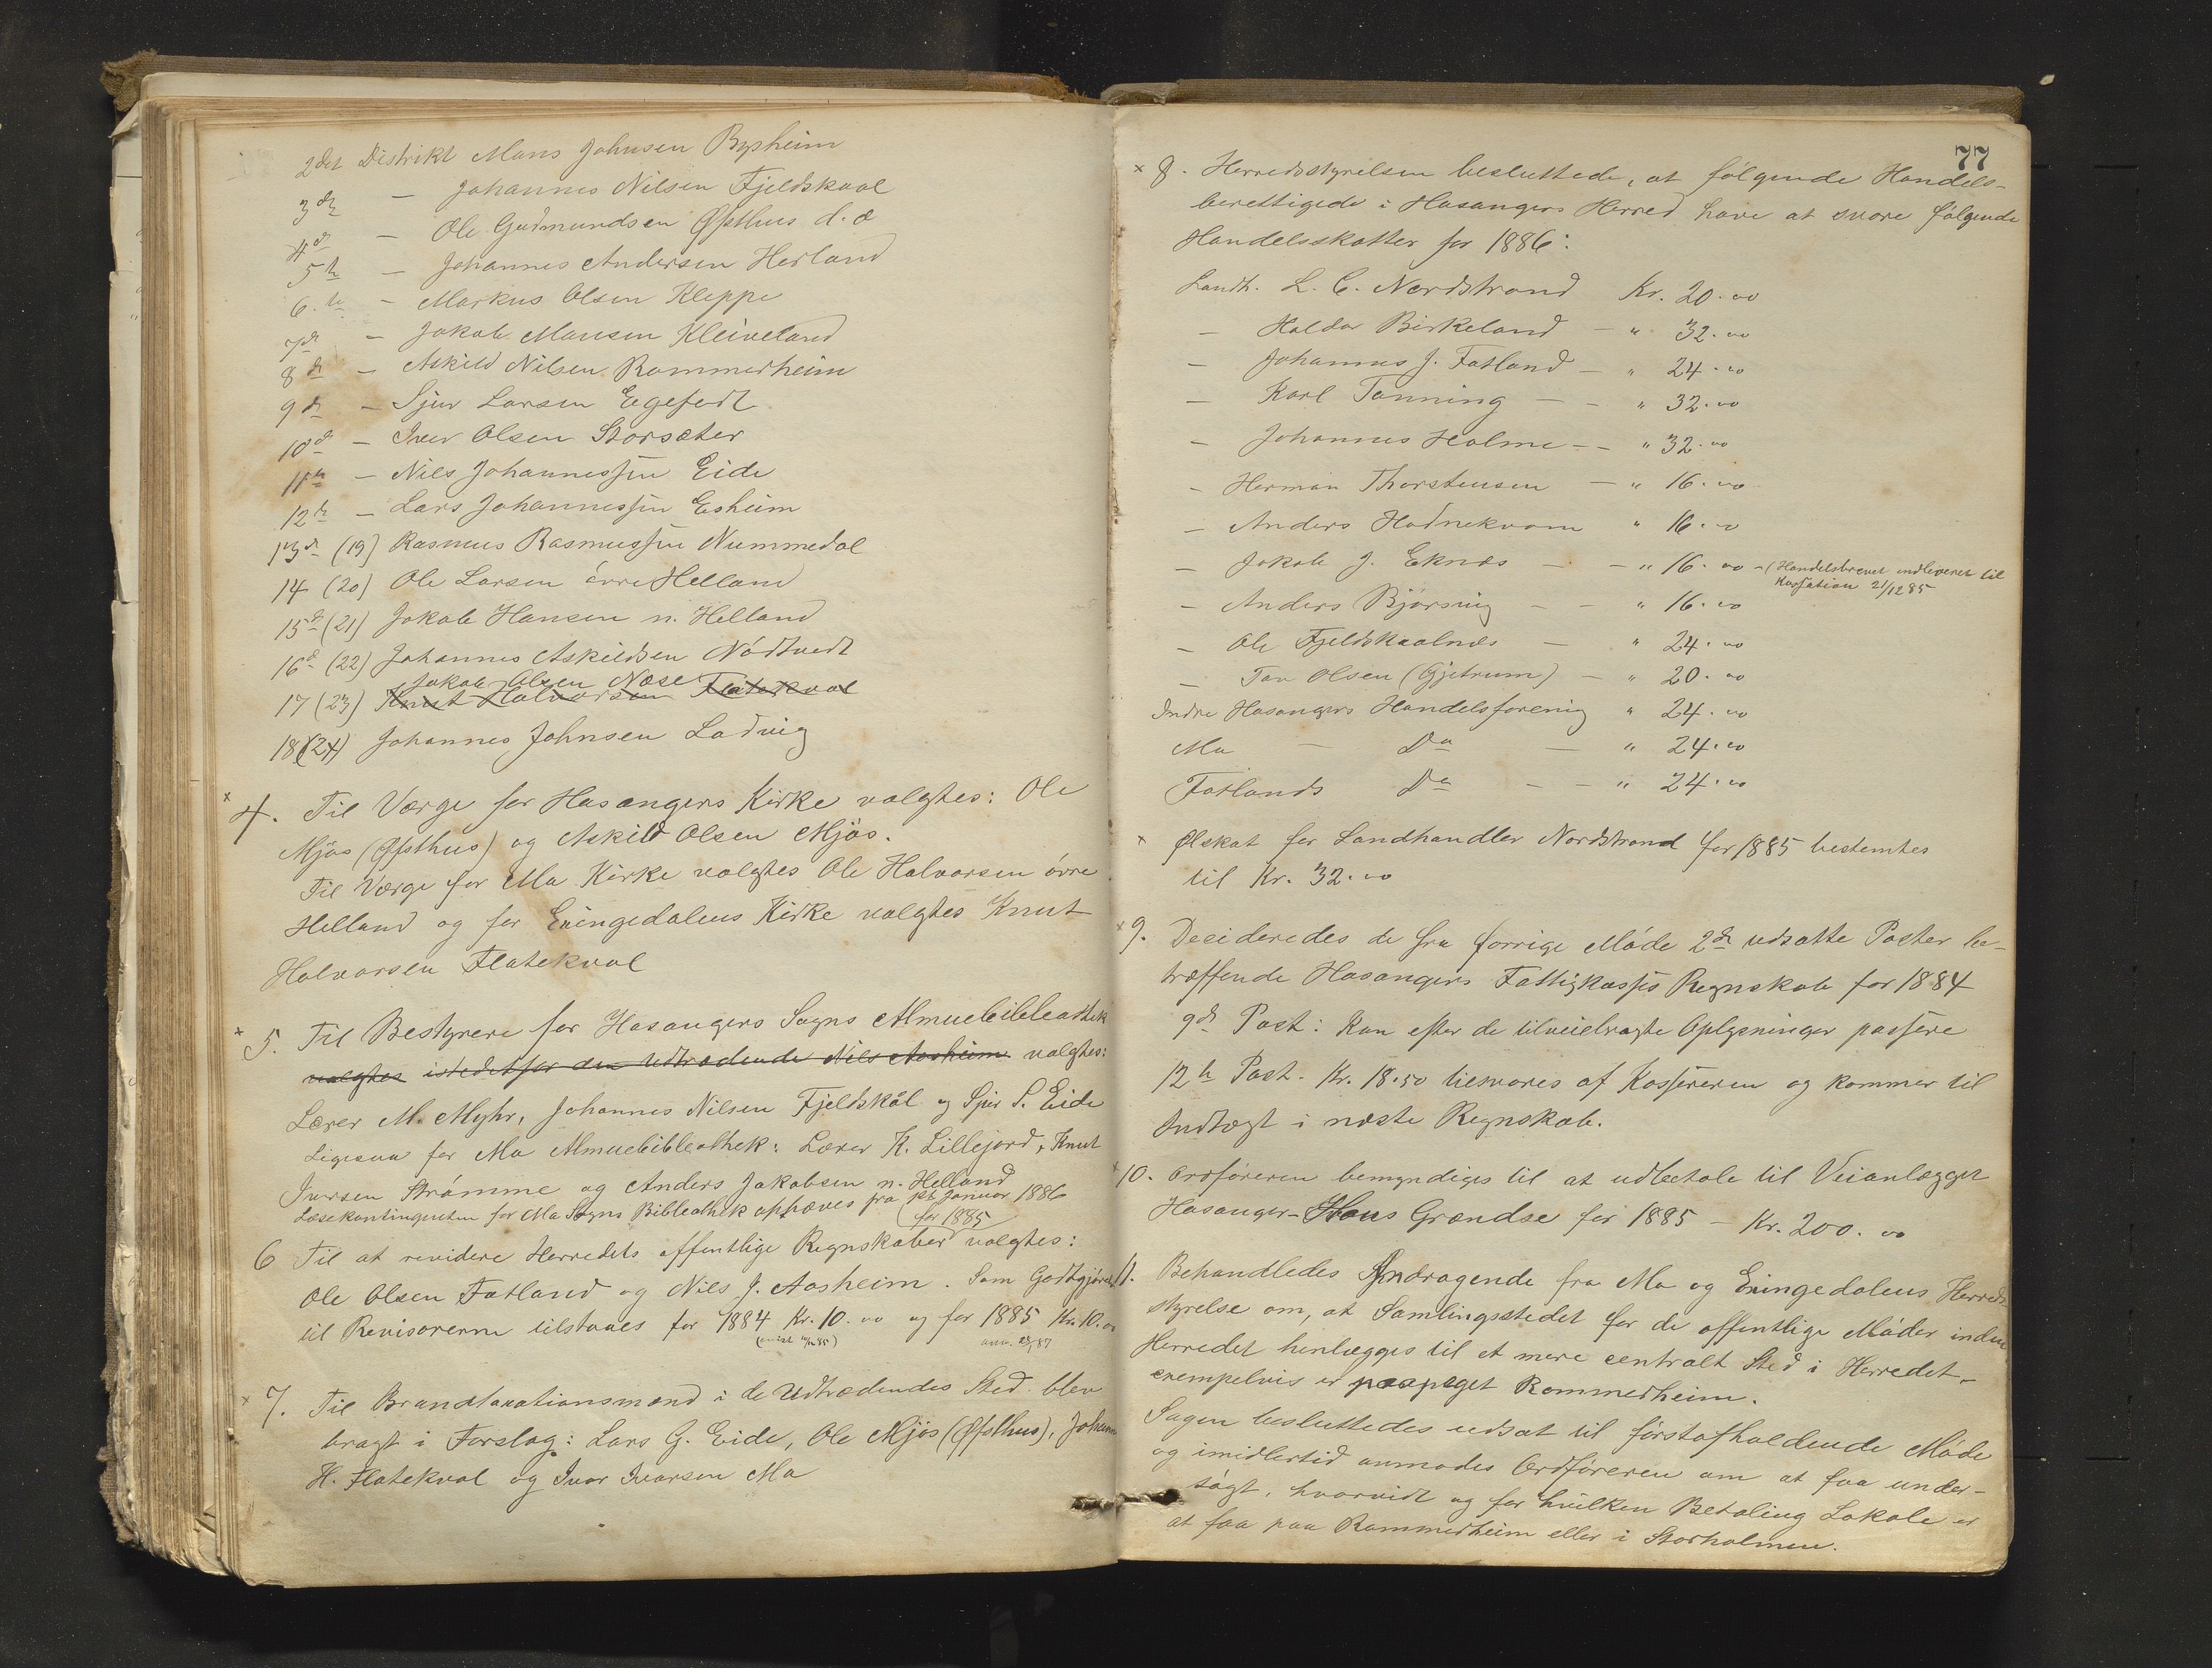 2det Distrikt Mans Johnsen Bysheim
3die — Johannes Nilsen Fjeldskaal
4de — Ole Gudmundsen Øfsthus d.æ
5te — Johannes Andersen Herland
6.te — Markus Olsen Kleppe
7de — Jakob Mansen Kleiveland
8de — Askild Nilsen Rommerheim
9de — Sjur Larsen Egefedt
10de — Iver Olsen Storsæter
11te — Nils Johannessen Eide
12te — Lars Johannessen Esheim
13de (19) Rasmus Rasmussen Nummedal
14 (20) Ole Larsen övre Helland
15de (21) Jakob Hansen n. Helland
16de (22) Johannes Askildsen Nödtvedt
Jakob Olsen Næse
17 (23) Knut Halvorsen Flatekval
18 (24) Johannes Johnsen Ladvig
× 4. Til Værge for Hosangers Kirke valgtes: Ole
Mjøs (Øfsthus) og Askild Olsen Mjös.
Til Værge for Mo Kirke valgtes Ole Halvorsen övre
Helland og for Eксingedalens Kirke valgtes Knut
Halvorsen Flatekval
× 5. Til Bestyrere for Hosangers Sogns Almuebibleothek
valgtes istedetfor den Udtrædende Nils Aasheim valgtes:
Lærer M. Myhr, Johannes Nilsen Fjeldskål og Sjur S. Eide
Ligesaa for Mo Almuebibleothek: Lærer K. Lillejord, Knut
Iversen Strömme og Anders Jakobsen n. Helland
Læsekontingenten for Mo Sogns Bibleothek ophæves fra 1st Januar 1886
for 1885
6 Til at revidere Herredets offentlige Regnskaber valgtes:
Ole Olsen Fatland og Nils J. Aasheim. Som Godtgjörelse
til Revisorerne tilstaaes for 1884 Kr. 10.00 og for 1885 Kr. 10.00
× 7. Til Brandtaxationsmænd i de Udtrædendes Sted blev
bragt i Forslag: Lars G. Eide, Ole Mjös (Øfsthus), Johan
H. Flatekval og Ivar Ivarsen Mo
77
× 8. Herredsstyrelsen besluttede, at fölgende Handels-
berettigede i Hosangers Herred have at svare fölgende
Handelsskatter for 1886:
Landh. L. C. Nordstrand Kr. 20.00
— Haldor Birkeland — " 32.00
— Johannes J. Fatland — " 24.00
— Karl Tanning — — " 32.00
— Johannes Holme — — " 32.00
— Herman Thorstensen — " 16.00
— Anders Hodnekvam " 16.00
— Jakob J. Eknæs — — " 16.00 — (Handelsbrevet indleveret til
Kassation 21/12 85
— Anders Bjørsvig — — " 16.00
— Ole Fjeldskaalnæs — " 24.00
— Tor Olsen (Gjetrum) — " 20.00
Indre Hosangers Handelsforening " 24.00
Mo — Do — " 24.00
Fatlands Do — — " 24.00
× Ølskat for Landhandler Nordstrand for 1885 bestemtes
til Kr. 32.00
× 9. Decideredes de fra forrige Möde 2de udsatte Poster be-
træffende Hosangers Fattigkasses Regnskab for 1884
9de Post: Kan efter de tilveiebragte Oplysninger passere
12te Post. Kr. 18.50 tilsvares af Kassereren og kommer til
Indtægt i næste Regnskab.
× 10. Ordföreren bemyndiges til at udbetale til Veianlægget
Hosanger–Hous Grændse for 1885 — Kr. 200.00
11. Behandledes Andragende fra Mo og Exingedalens Herreds-
styrelse om, at Samlingsstedet for de offentlige Möder inden
Herredet henlægges til et mere centralt Sted i Herredet —
exempelvis er paapeget Rommerheim.
Sagen besluttedes udsat til förstafholdende Möde
og imidlertid anmodes Ordföreren om at faa under-
sögt, hvorvidt og for hvilken Betaling Lokale er
at faa paa Rommerheim eller i Storholmen.